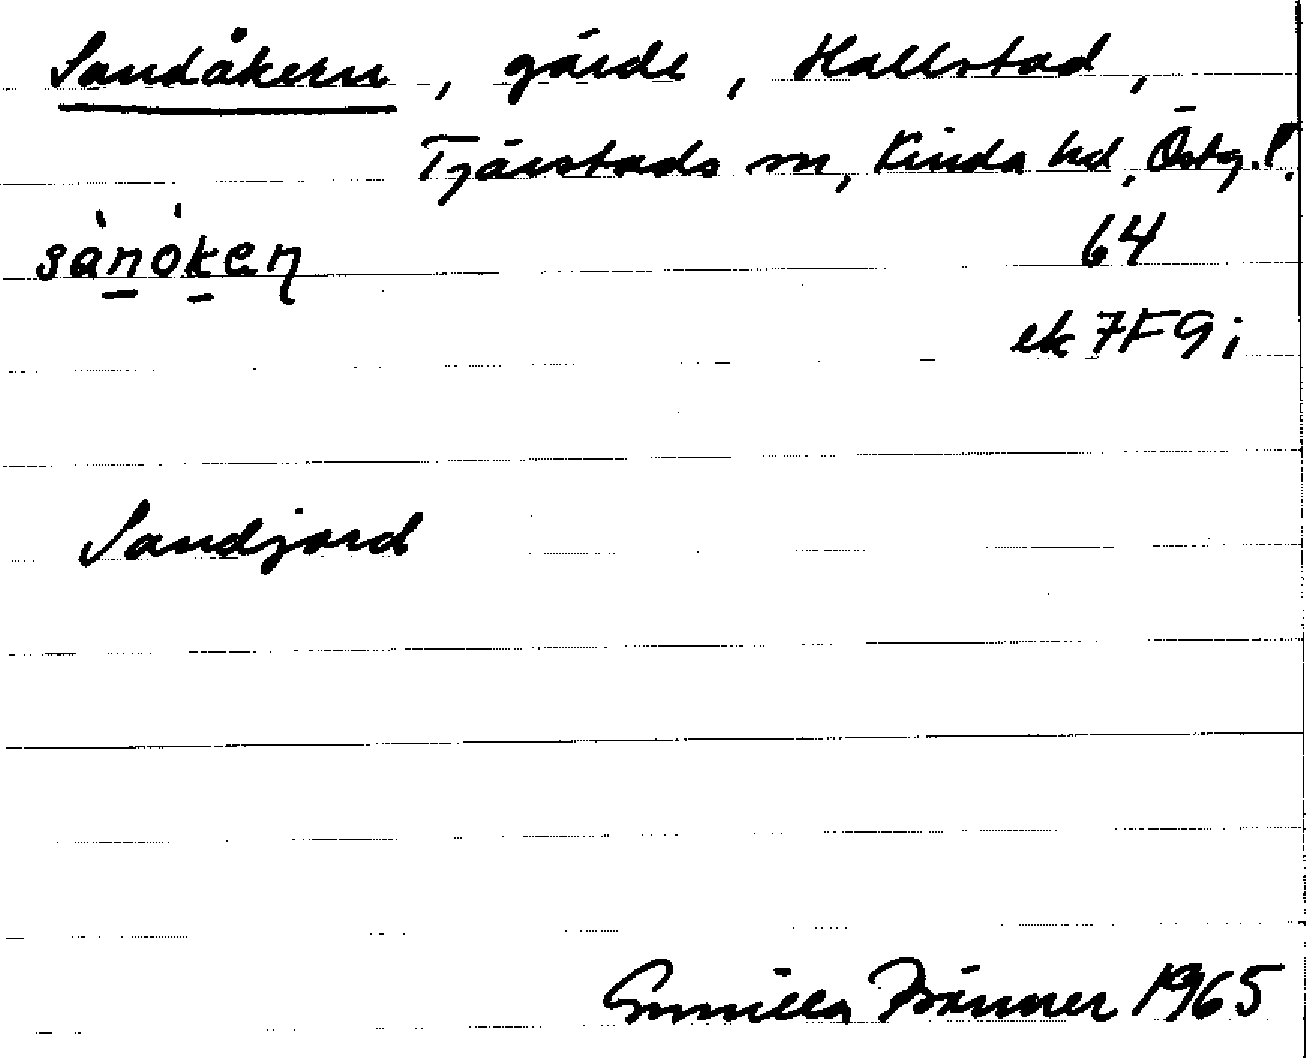 Sandåkern, gärde, Hallstad,
Tjärstads sn, Kinda hd, Östg.!
sànóken
64
ek 7F9i
Sandjord
Gunilla Bränner 1965